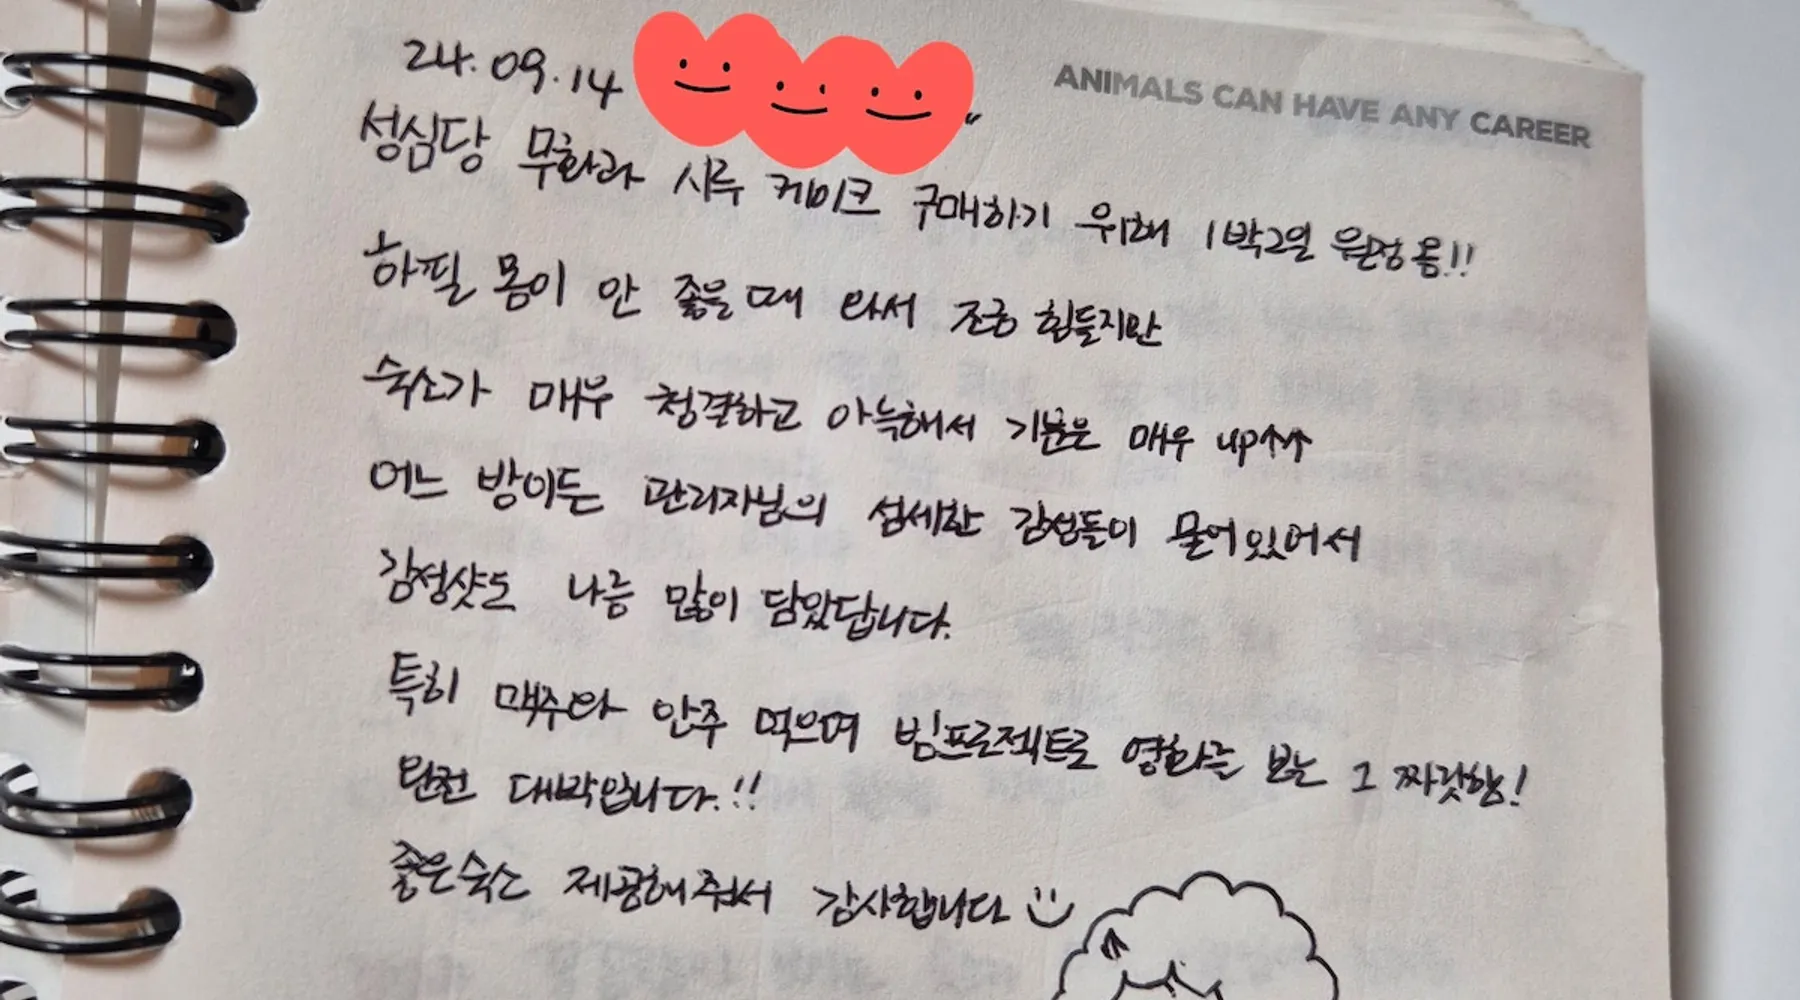 24.09.14
ANIMALS CAN HAVE ANY CAREER
성심당 무화과 시루 케이크 구매하기 위해 1박2일 원정 옴!!
하필 몸이 안 좋을때 와서 조금 힘들지만
숙소가 매우 청결하고 아늑해서 기분은 매우 up↑↑
어느 방이든 관리자님의 섬세한 감성들이 묻어있어서
감성샷도 나름 많이 담았답니다.
특히 맥주와 안주 먹으며 빔프로젝트로 영화를 보는 그 짜릿함!
완전 대박입니다.!!
좋은숙소 제공해줘서 감사합니다